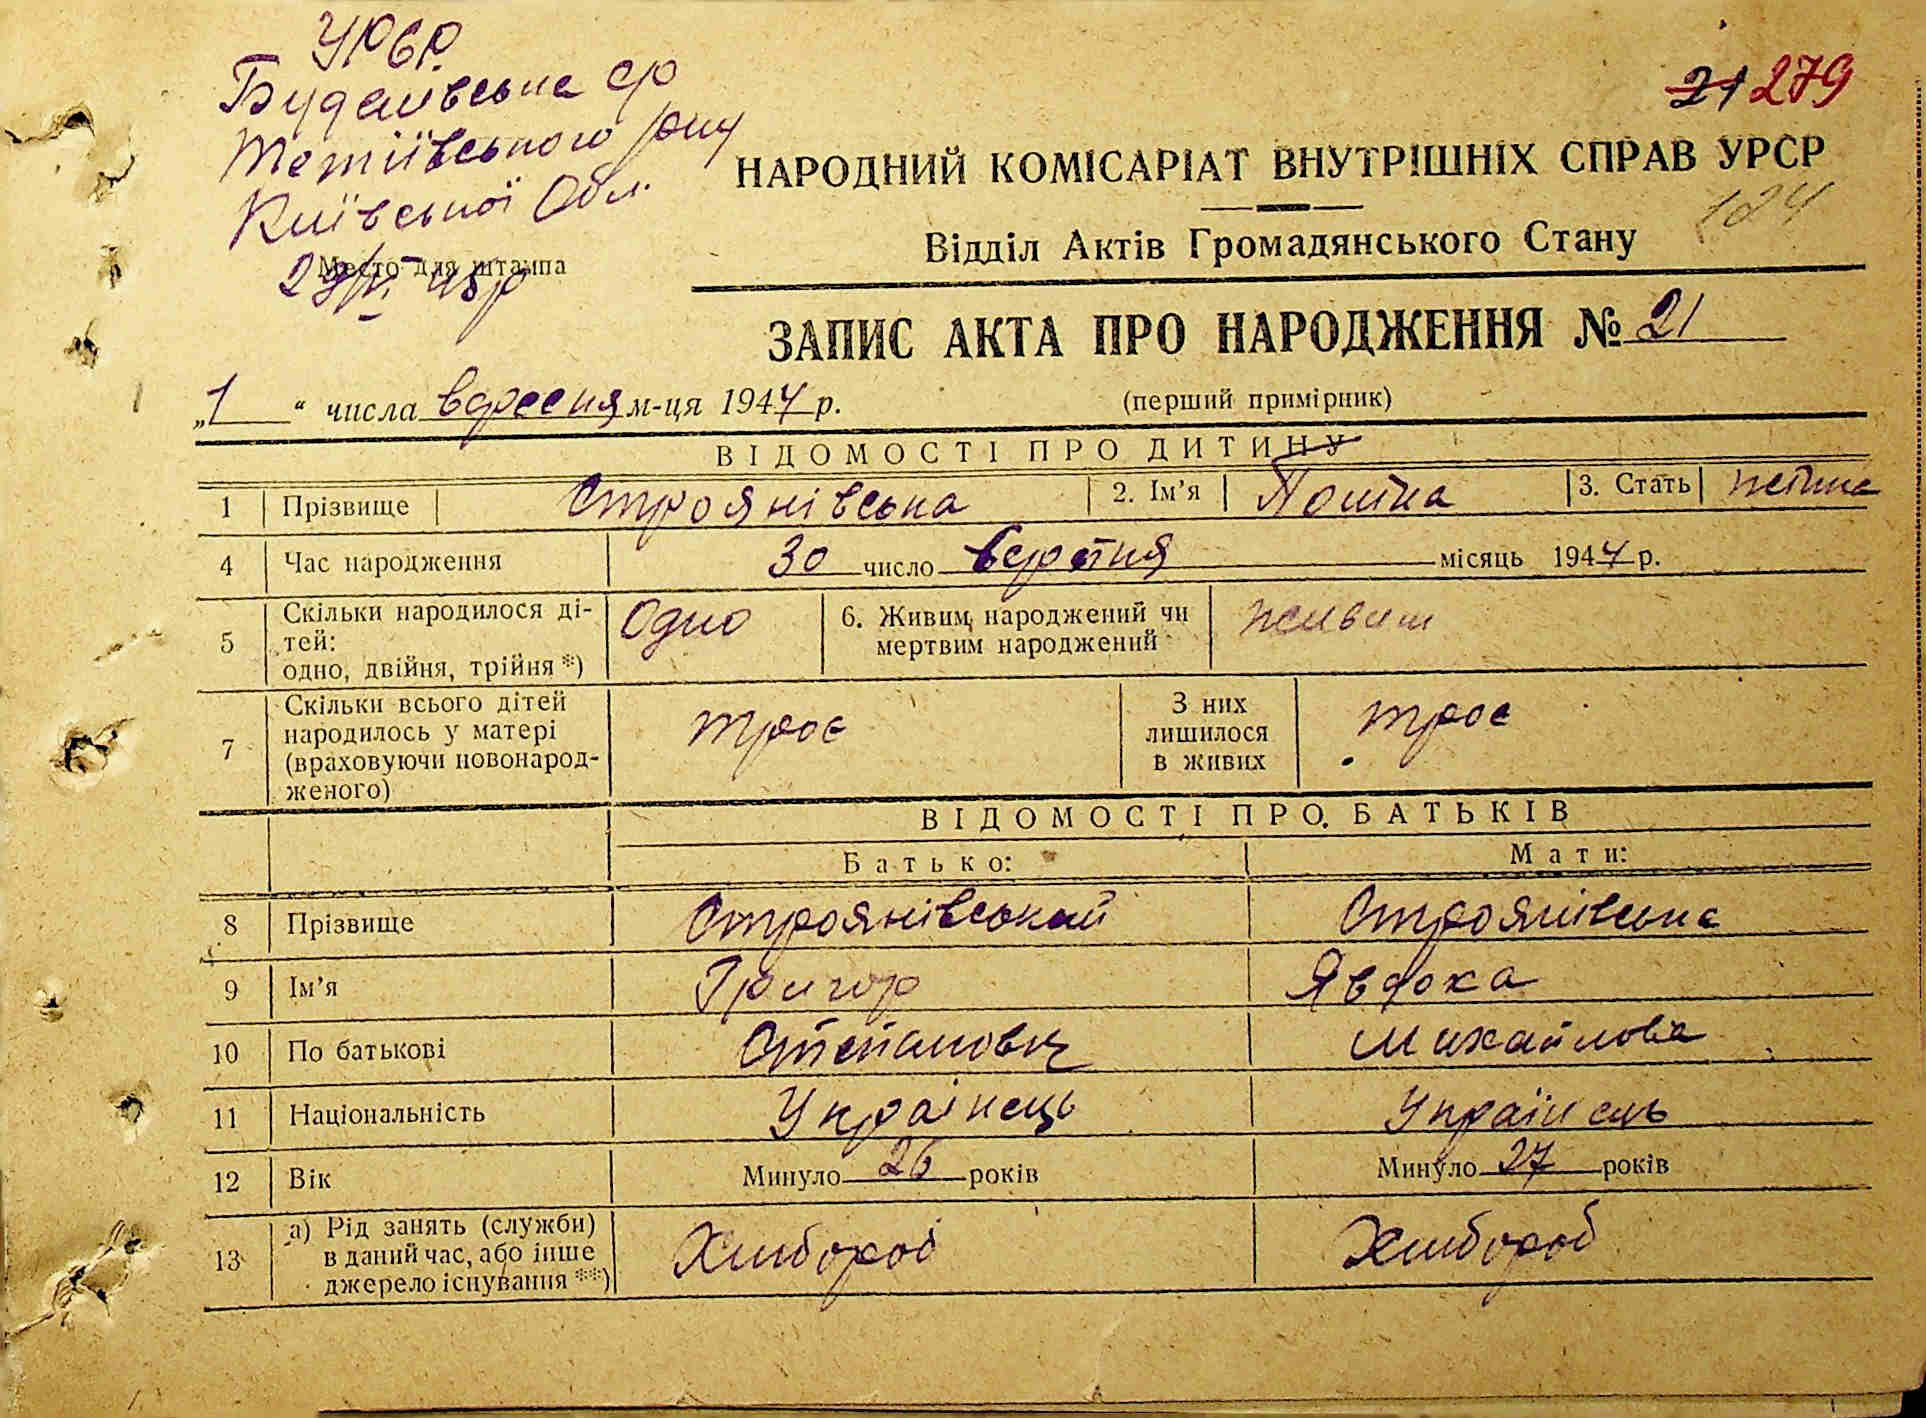 УРСР
21 279
Будаївська с/р
Тетіївського р-ну
Київської Обл.
НАРОДНИЙ КОМІСАРІАТ ВНУТРІШНІХ СПРАВ УРСР
124
Відділ Актів Громадянського Стану
Место для штампа
ЗАПИС АКТА ПРО НАРОДЖЕННЯ № 21
„1“ числа вересня м-ця 1944 р.
(перший примірник)
ВІДОМОСТІ ПРО ДИТИНУ
1 Прізвище Строянівська 2. Ім'я 3. Стать
4 Час народження 30 число місяць 1944 р.
5 Скільки народилося ді-
тей:
одно, двійня, трійня *) Одно 6. Живим народжений чи
мертвим народжений живим
7 Скільки всього дітей
народилось у матері
(враховуючи новонарод-
женого) троє З них
лишилося
в живих троє
ВІДОМОСТІ ПРО БАТЬКІВ
Батько: Мати:
8 Прізвище Строянівський Строянівська
9 Ім'я Григор Явдоха
10 По батькові Степанович Михайлова
11 Національність Українець Українець
12 Вік Минуло 26 років Минуло 27 років
13 а) Рід занять (служби)
в даний час, або інше
джерело існування **) Хлібороб Хлібороб